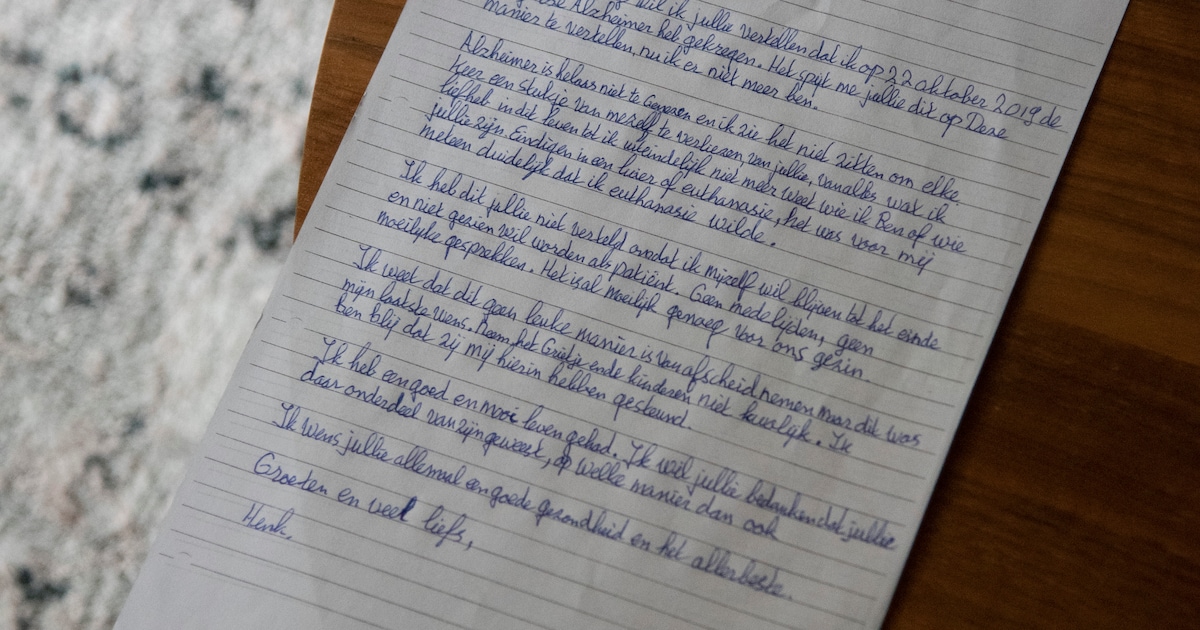 wil ik jullie vertellen dat ik op 22 oktober 2019 de
Alzheimer heb gekregen. Het spijt me jullie dit op Deze
manier te vertellen, nu ik er niet meer ben.
Alzheimer is helaas niet te Genezen en ik zie het niet zitten om elke
keer een stukje van mezelf te verliezen, van jullie, van alles wat ik
liefheb in dit leven tot ik uiteindelijk niet meer weet wie ik Ben of wie
jullie zijn. Eindigen in een luier of euthanasie, het was voor mij
meteen duidelijk dat ik euthanasie wilde.
Ik heb dit jullie niet verteld omdat ik mijzelf wil blijven tot het einde
en niet gezien wil worden als patiënt. Geen medelijden, geen
moeilijke gesprekken. Het is al moeilijk genoeg voor ons gezin.
Ik weet dat dit geen leuke manier is van afscheid nemen maar dit was
mijn laatste wens. Neem het Grietje en de kinderen niet kwalijk. Ik
ben blij dat zij mij hierin hebben gesteund.
Ik heb een goed en mooi leven gehad. Ik wil jullie bedanken dat jullie
daar onderdeel van zijn geweest, op welke manier dan ook
Ik wens jullie allemaal een goede gezondheid en het allerbeste.
Groeten en veel liefs,
Henk.